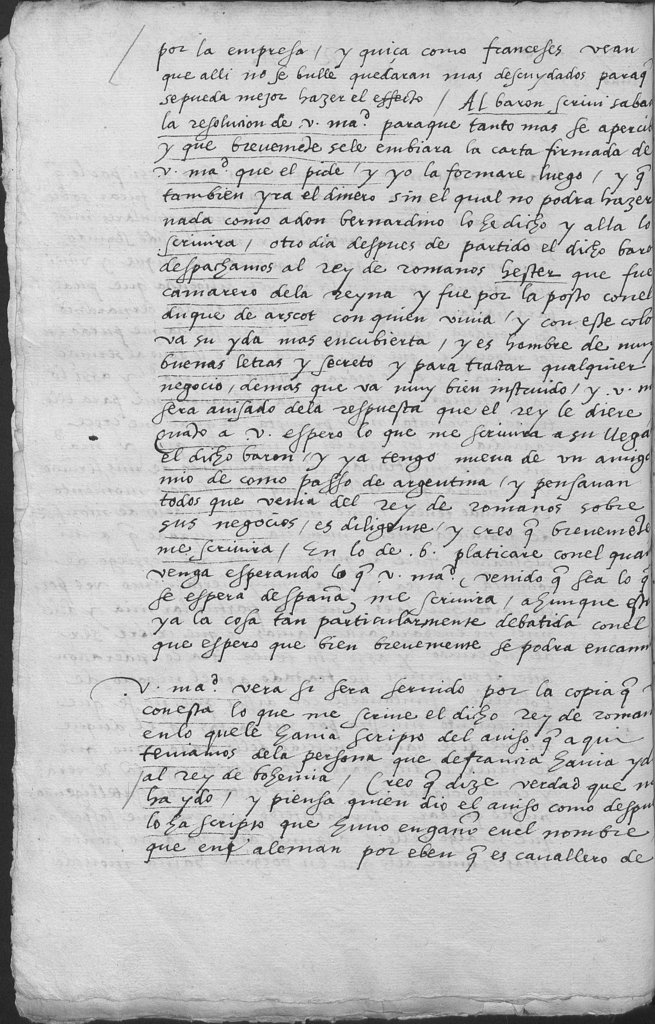 por la empresa / y quiça como franceses vean
que alli no se bulle quedaran mas descuydados paraq̃
se pueda mejor hazer el effecto / Al baron scriui
la resolucion de v. ma.d paraque tanto mas se
y que breuemēte se le embiara la carta firmada de
v. ma.d que el pide / y yo la formare luego / y q̃
tambien yra el dinero sin el qual no podra hazer
nada como a don bernardino lo he dicho y alla lo
scriuira / otro dia despues de partido el dicho baro
despachamos al rey de romanos hester que fue
camarero dela reyna y fue por la posta conel
duque de arscot con quien viuia / y con este colo
va su yda mas encubierta / y es hombre de muy
buenas letras y secreto y para tractar qualquier
negocio / demas que va muy bien instruido / y v. m
sera auisado dela respuesta que el rey le diere
quāto a v. espero lo que me scriuira a su llega
el dicho baron / y ya tengo nueua de vn amigo
mio de como passo de argentina / y pensauan
todos que venia del rey de romanos sobre
sus negocios / es diligente / y creo q̃ breuemēte
me scriuira / En lo de .6. platicare conel quan
venga esperando lo q̃ v. ma.d venido q̃ sea lo q̃
se espera despaña me scriuira / ahunque esta
ya la cosa tan particularmente debatida conel
que espero que bien breuemente se podra encami
v. ma.d vera si sera seruido por la copia q̃
conesta lo que me scriue el dicho rey de roman
enlo quele hauia scripto del auiso q̃ aqui
teniamos dela persona que de francia hauia yd
al rey de bohemia / Creo q̃ dize verdad que n
ha ydo / y piensa quien dio el auiso como despu
lo ha scripto que huuo engaño enel nombre
que en aleman por eben q̃ es cauallero de